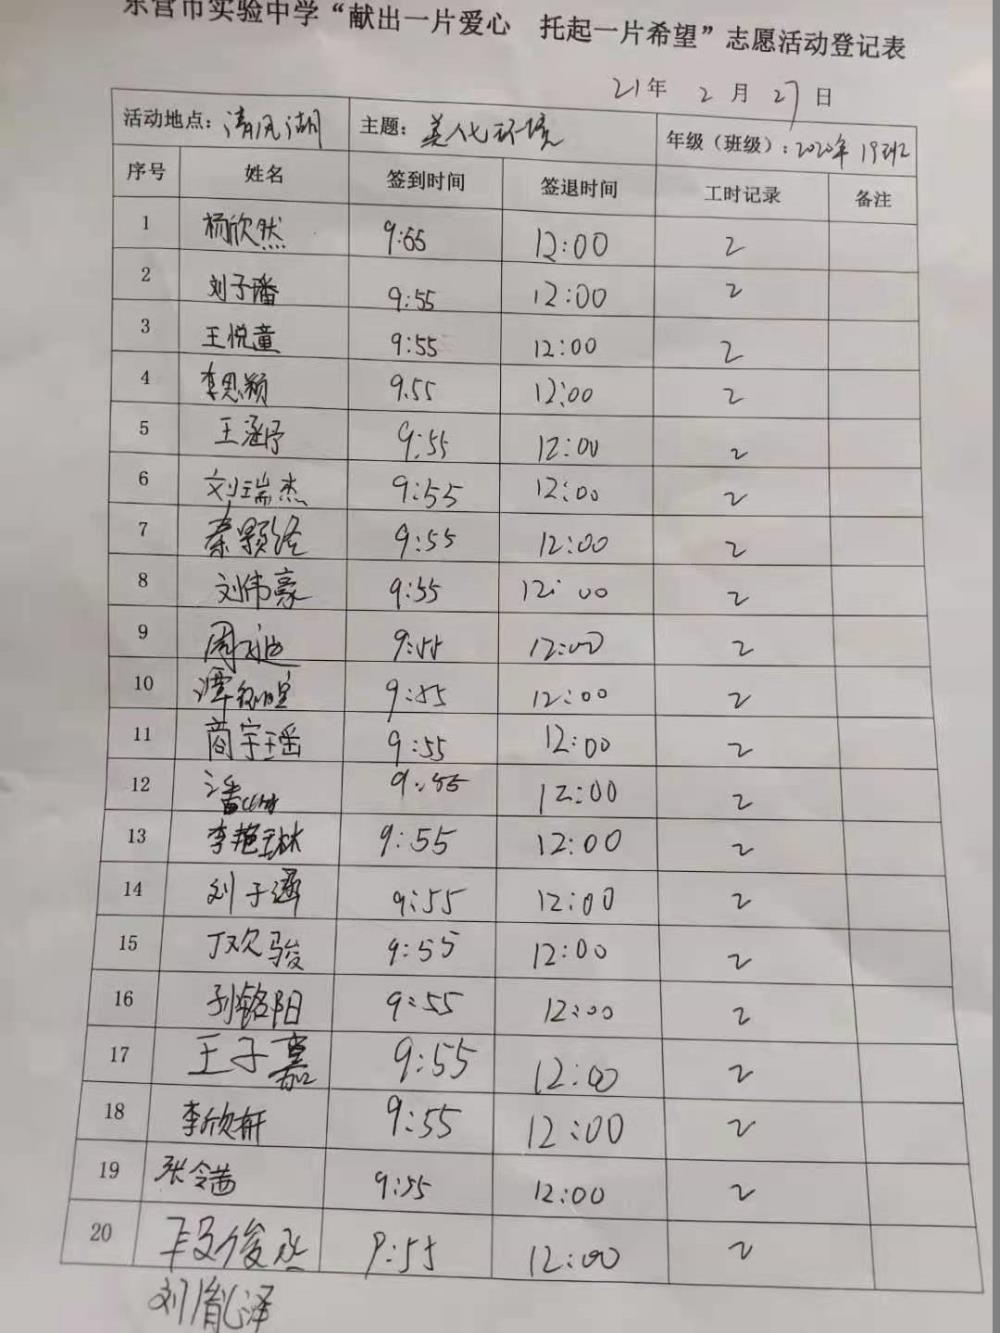 东营市实验中学“献出一片爱心 托起一片希望”志愿活动登记表
21年 2月 27日
活动地点：清风湖 主题：美化环境 年级（班级）：2020年19班
序号 姓名 签到时间 签退时间 工时记录 备注
1 杨欣然 9:55 12:00 2
2 刘子璠 9:55 12:00 2
3 王悦童 9:55 12:00 2
4 李思颖 9.55 12:00 2
5 王涵 9:55 12:00 2
6 刘瑞杰 9:55 12:00 2
7 秦 9:55 12:00 2
8 刘伟豪 9:55 12:00 2
9 周 9:55 12:00 2
10 谭 9:55 12:00 2
11 商宇瑶 9:55 12:00 2
12 潘 9:55 12:00 2
13 李艳琳 9:55 12:00 2
14 刘子 9:55 12:00 2
15 丁欢骏 9:55 12:00 2
16 孙铭阳 9:55 12:00 2
17 王子嘉 9:55 12:00 2
18 李欣轩 9:55 12:00 2
19 张令茜 9:55 12:00 2
20 段俊丞 9:55 12:00 2
刘胤泽